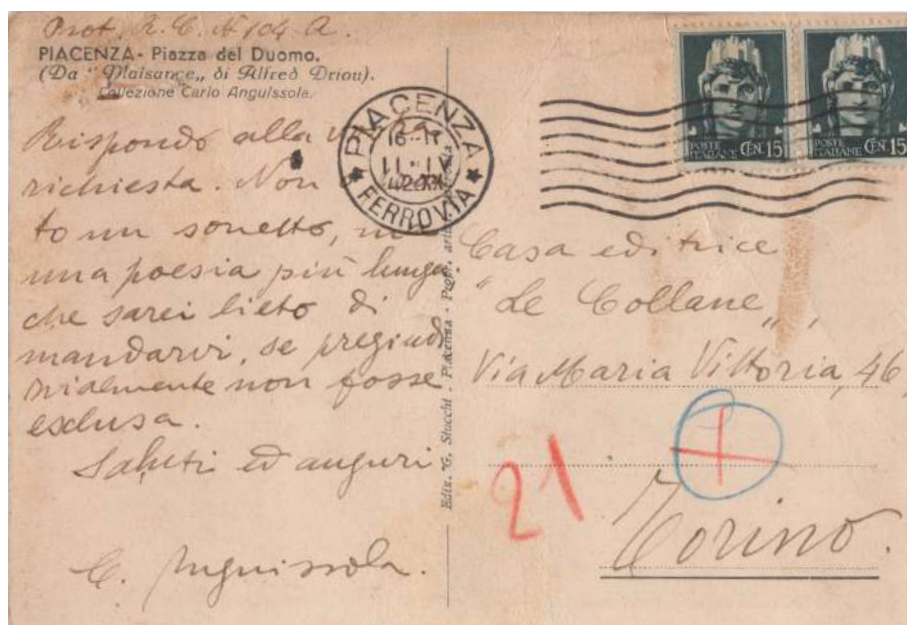 Prot. R. C. N 104 A.
PIACENZA - Piazza del Duomo.
(Da "Plaisance„ di Alfred Driou).
Collezione Carlo Anguissola.
Rispondo alla
richiesta. Non
to un sonetto, 
una poesia più lunga
che sarei lieto di
mandarvi, se pregiud
zialmente non fosse
esclusa.
Saluti ed auguri
C. Anguissola.
Ediz. G. Stucchi - Piacenza -
PIACENZA
FERROVIA
POSTE ITALIANE CEN 15
POSTE ITALIANE CEN 15
Casa editrice
"Le Collane„,
Via Maria Vittoria, 46
21
Torino.